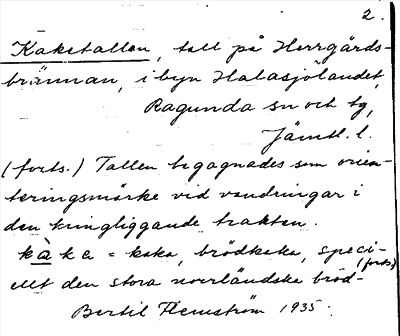 2.
Kakstallen, tall på Herrgårds-
brännan, i byn Halasjölandet,
Ragunda sn och tg,
Jämtl. l.
(forts.) Tallen begagnades som orien-
teringsmärke vid vandringar i
den kringliggande trakten.
kàka = kaka, brödkaka, speci-
ellt den stora norrländska bröd- (forts.)
Bertil Flemström 1935.